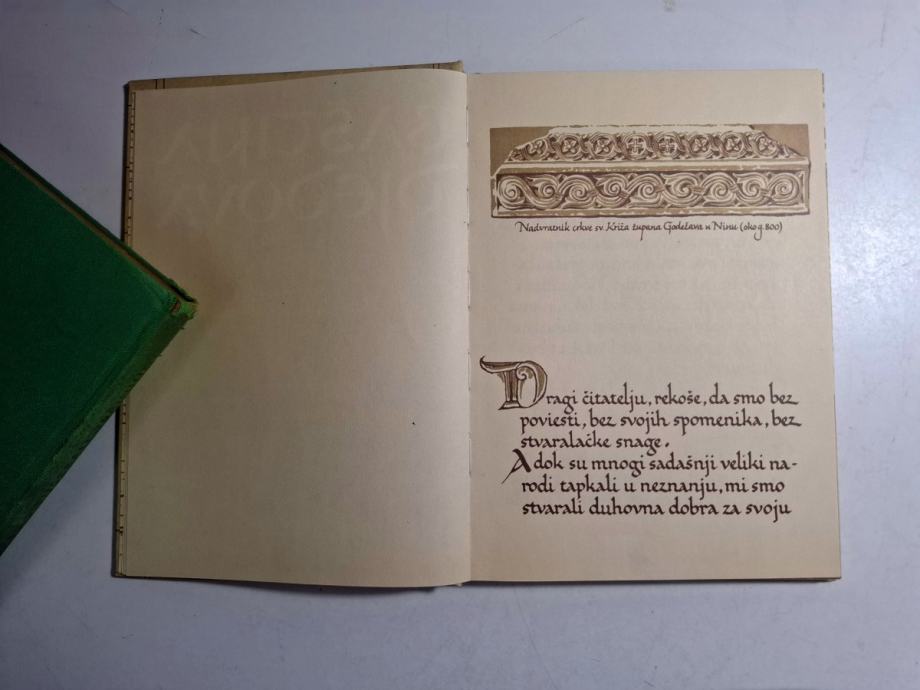 BAŠTINA
DJEDOVA
Nadvratnik crkve sv. Križa župana Godežava u Ninu (oko g. 800)
Dragi čitatelju, rekoše, da smo bez
poviesti, bez svojih spomenika, bez
stvaralačke snage.
A dok su mnogi sadašnji veliki na-
rodi tapkali u neznanju, mi smo
stvarali duhovna dobra za svoju